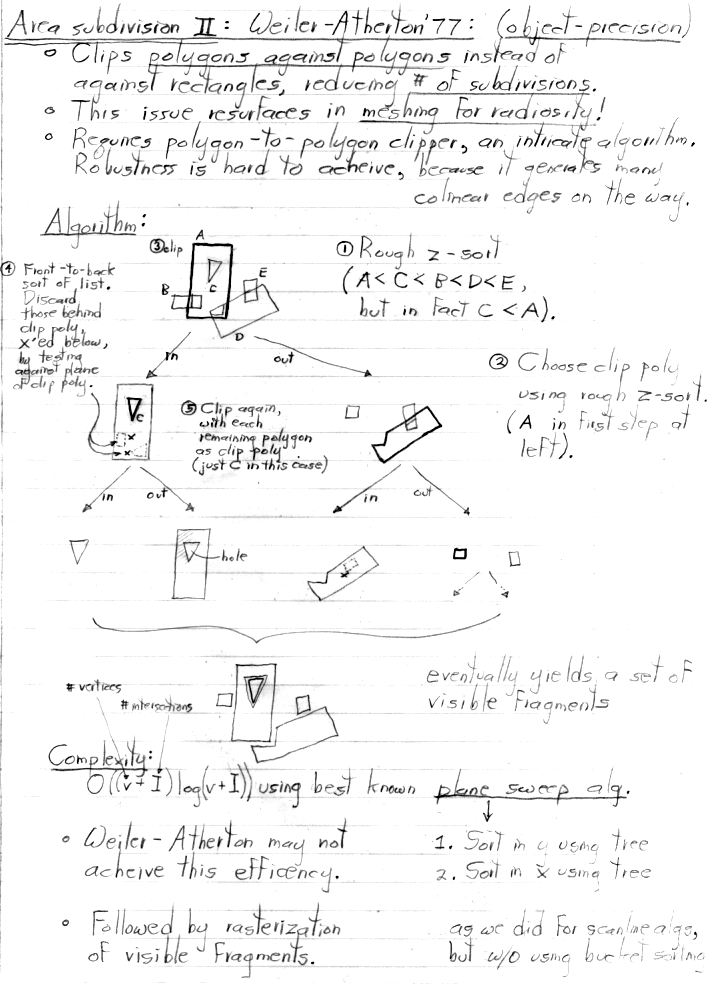 Area subdivision II: Weiler-Atherton '77: (object-precision)
o Clips polygons against polygons instead of
against rectangles, reducing # of subdivisions.
o This issue resurfaces in meshing for radiosity!
o Requires polygon-to-polygon clipper, an intricate algorithm.
Robustness is hard to acheive, because it generates many
colinear edges on the way.
Algorithm:
③ clip
A
B
C
D
E
① Rough z-sort
(A < C < B < D < E,
but in fact C < A).
④ Front-to-back
sort of list.
Discard
those behind
clip poly,
x'ed below,
by testing
against plane
of clip poly.
in
out
② Choose clip poly
using rough z-sort.
(A in first step at
left).
C
x
x
⑤ Clip again,
with each
remaining polygon
as clip poly
(just C in this case)
in
out
in
out
hole
x
eventually yields a set of
visible fragments
# vertices
# intersections
Complexity:
O((v + I) log(v+I)) using best known plane sweep alg.
o Weiler-Atherton may not
acheive this efficency.
1. Sort in y using tree
2. Sort in x using tree
o Followed by rasterization
of visible fragments.
as we did for scanline algs,
but w/o using bucket sorting